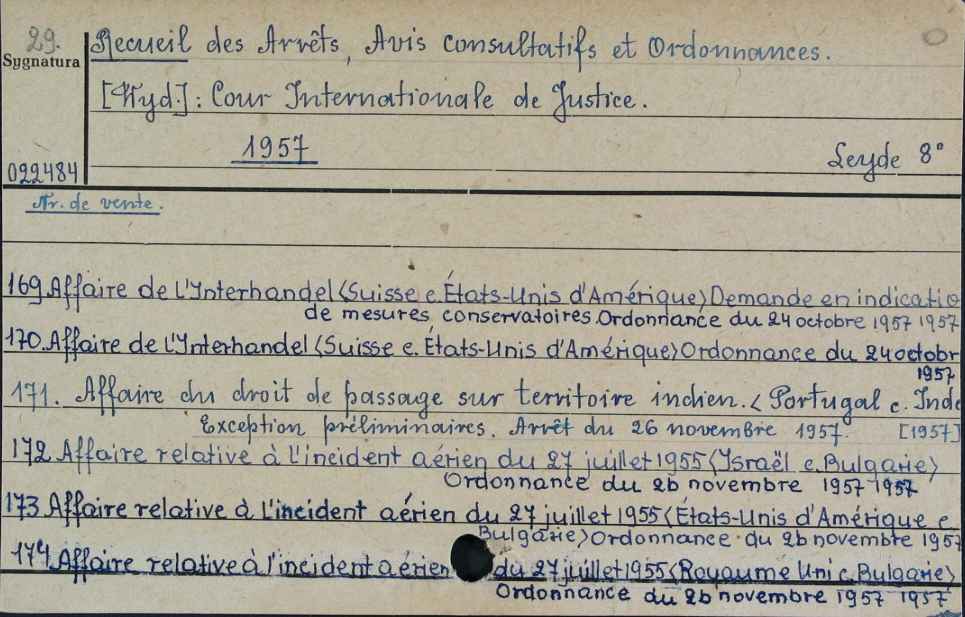 29.
Sygnatura
022484
Recueil des Arrêts, Avis consultatifs et Ordonnances.
[Wyd.]: Cour Internationale de Justice.
1957
Leyde 8°
Nr. de vente.
169 Affaire de l'Interhandel <Suisse c. États-Unis d'Amérique> Demande en indicatio
de mesures conservatoires. Ordonnance du 24 octobre 1957 1957
170. Affaire de l'Interhandel <Suisse c. États-Unis d'Amérique> Ordonnance du 24 octobr
1957
171. Affaire du droit de passage sur territoire indien. < Portugal c. Inde
Exception préliminaires. Arrêt du 26 novembre 1957. [1957]
172 Affaire relative à l'incident aérien du 27 juillet 1955 <Israël c. Bulgarie>
Ordonnance du 26 novembre 1957 1957
173 Affaire relative à l'incident aérien du 27 juillet 1955 <États-Unis d'Amérique c
Bulgarie> Ordonnance du 26 novembre 1957
174 Affaire relative à l'incident aérien du 27 juillet 1955 <Royaume Uni c. Bulgarie>
Ordonnance du 26 novembre 1957 1957